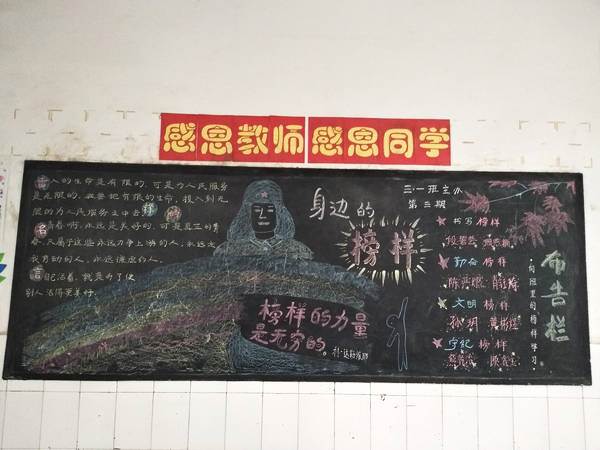 感恩教师 感恩同学
人的生命是有限的,可是为人民服务
是无限的,我要把有限的生命,投入到无
限的为人民服务之中去
青春啊,永远是美好的,可是真正的青
春,只属于这些永远力争上游的人,永远忘
我劳动的人,永远谦虚的人。
自己活着,就是为了使
别人活得更美好。
名
言
身边的
榜样
榜样的力量
是无穷的
三·一班主办
第三期
书写榜样
勤奋榜样
文明榜样
孙玥
守纪榜样
布告栏
向班里的榜样学习